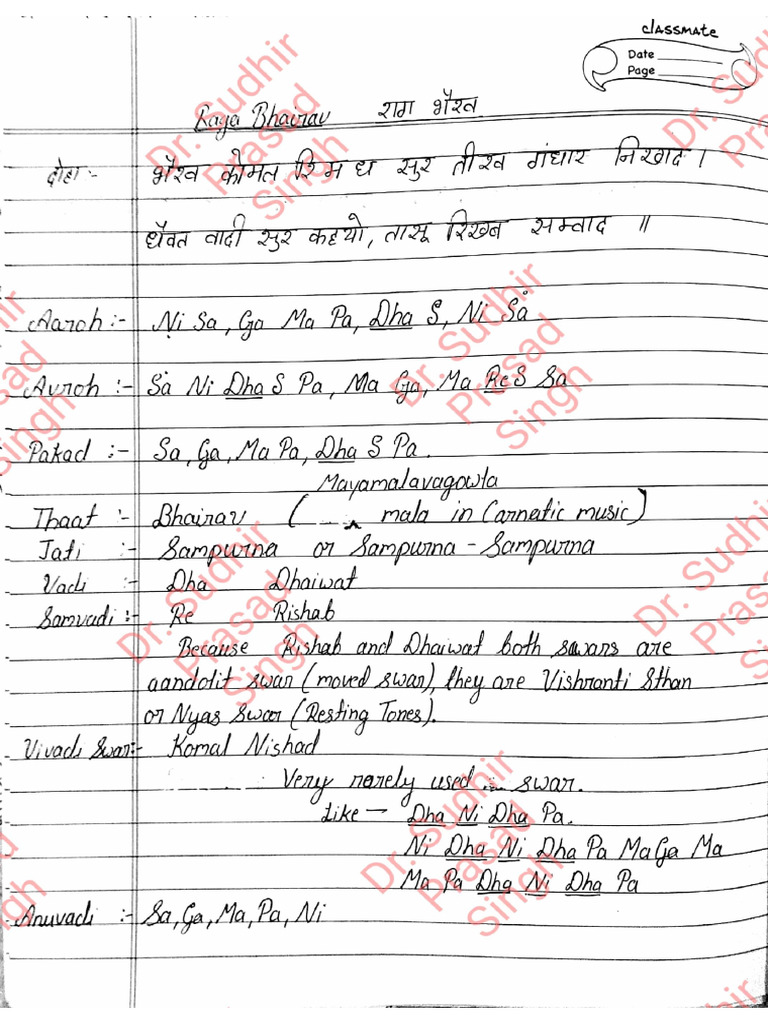 classmate
Date
Page
Raga Bhairav राग भैरव
दोहा :- भैरव कोमल रि म ध सुर तीख गंधार निखाद ।
धैवत वादी सुर कहयो, तासू रिखब सम्वाद ॥
Aaroh :- Ṇi Sa, Ga Ma Pa, <u>Dha</u> S, Ni Ṡa
Avroh :- Ṡa Ni <u>Dha</u> S Pa, Ma Ga, Ma <u>Re</u> S Sa
Pakad :- Sa, Ga, Ma Pa, <u>Dha</u> S Pa.
Mayamalavagowla
Thaat :- Bhairav ( ... ‸ mala in Carnatic music)
Jati :- Sampurna or Sampurna - Sampurna
Vadi :- Dha Dhaiwat
Samvadi :- Re Rishab
Because Rishab and Dhaiwat both swars are
aandolit swar (moved swar), they are Vishranti Sthan
or Nyas Swar (Resting Tones).
Vivadi Swar:- Komal Nishad
Very rarely used swar.
Like — <u>Dha</u> <u>Ni</u> <u>Dha</u> Pa.
Ni <u>Dha</u> <u>Ni</u> <u>Dha</u> Pa Ma Ga Ma
Ma Pa <u>Dha</u> <u>Ni</u> <u>Dha</u> Pa
Anuvadi :- Sa, Ga, Ma, Pa, Ni
Dr. Sudhir Prasad Singh